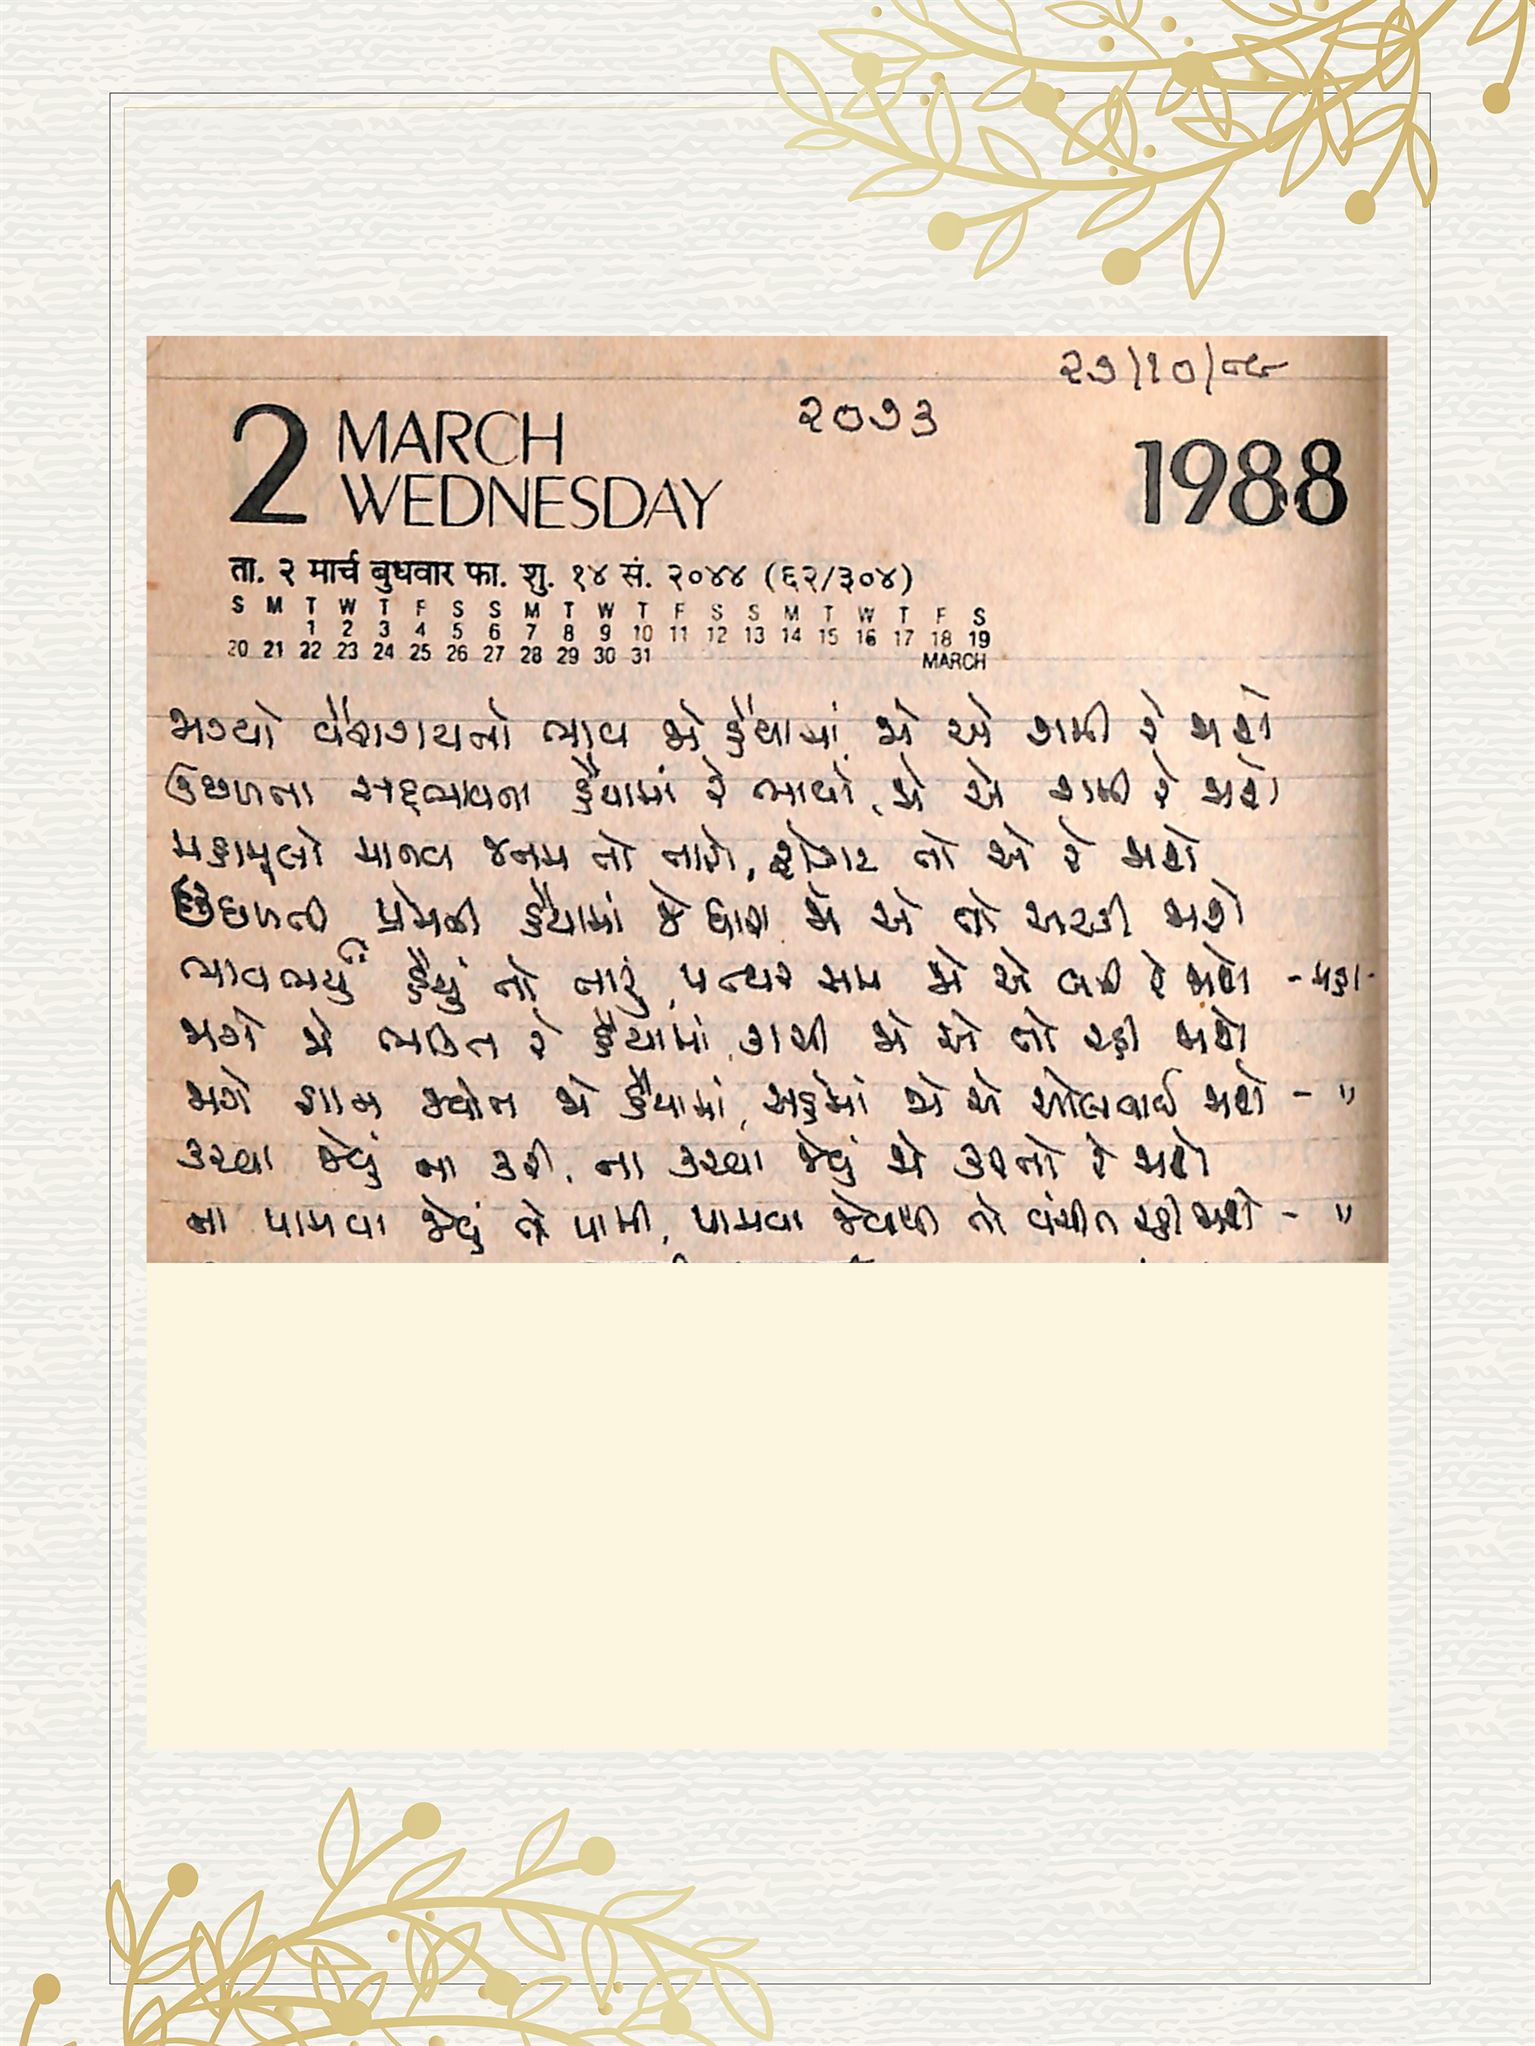 ૨૭/૧૦/૮૯
૨૦૭૩
2 MARCH
WEDNESDAY
1988
ता. २ मार्च बुधवार फा. शु. १४ सं. २०४४ (६२/३०४)
S M T W T F S S M T W T F S S M T W T F S
1 2 3 4 5 6 7 8 9 10 11 12 13 14 15 16 17 18 19
20 21 22 23 24 25 26 27 28 29 30 31
MARCH
જાગ્યો વૈરાગ્યનો ભાવ જો હૈયામાં જો એ શમી રે જાશે
ઉછળતા સદ્દભાવના હૈયામાં રે ભાવો, જો એ શમી રે જાશે
મહામૂલો માનવ જનમ તો તારો, ફોગટ તો એ રે જાશે
ઉછળતી પ્રેમની હૈયામાં જે ધારા જો એ તો અટકી જાશે
ભાવભર્યું હૈયું તો તારું, પત્થર સમ જો એ બની રે જાશે - મહા-
જાગે જો ભક્તિ રે હૈયામાં, કાચી જો એ તો રહી જાશે
જાગે જ્ઞાન જ્યોત જો હૈયામાં, અહંમાં જો એ ઓલવાઈ જાશે - "
કરવા જેવું ના કરી, ના કરવા જેવું જો કરતો રે જાશે
ના પામવા જેવું તે પામી, પામવા જેવાથી તો વંચીત રહી જાશે - "